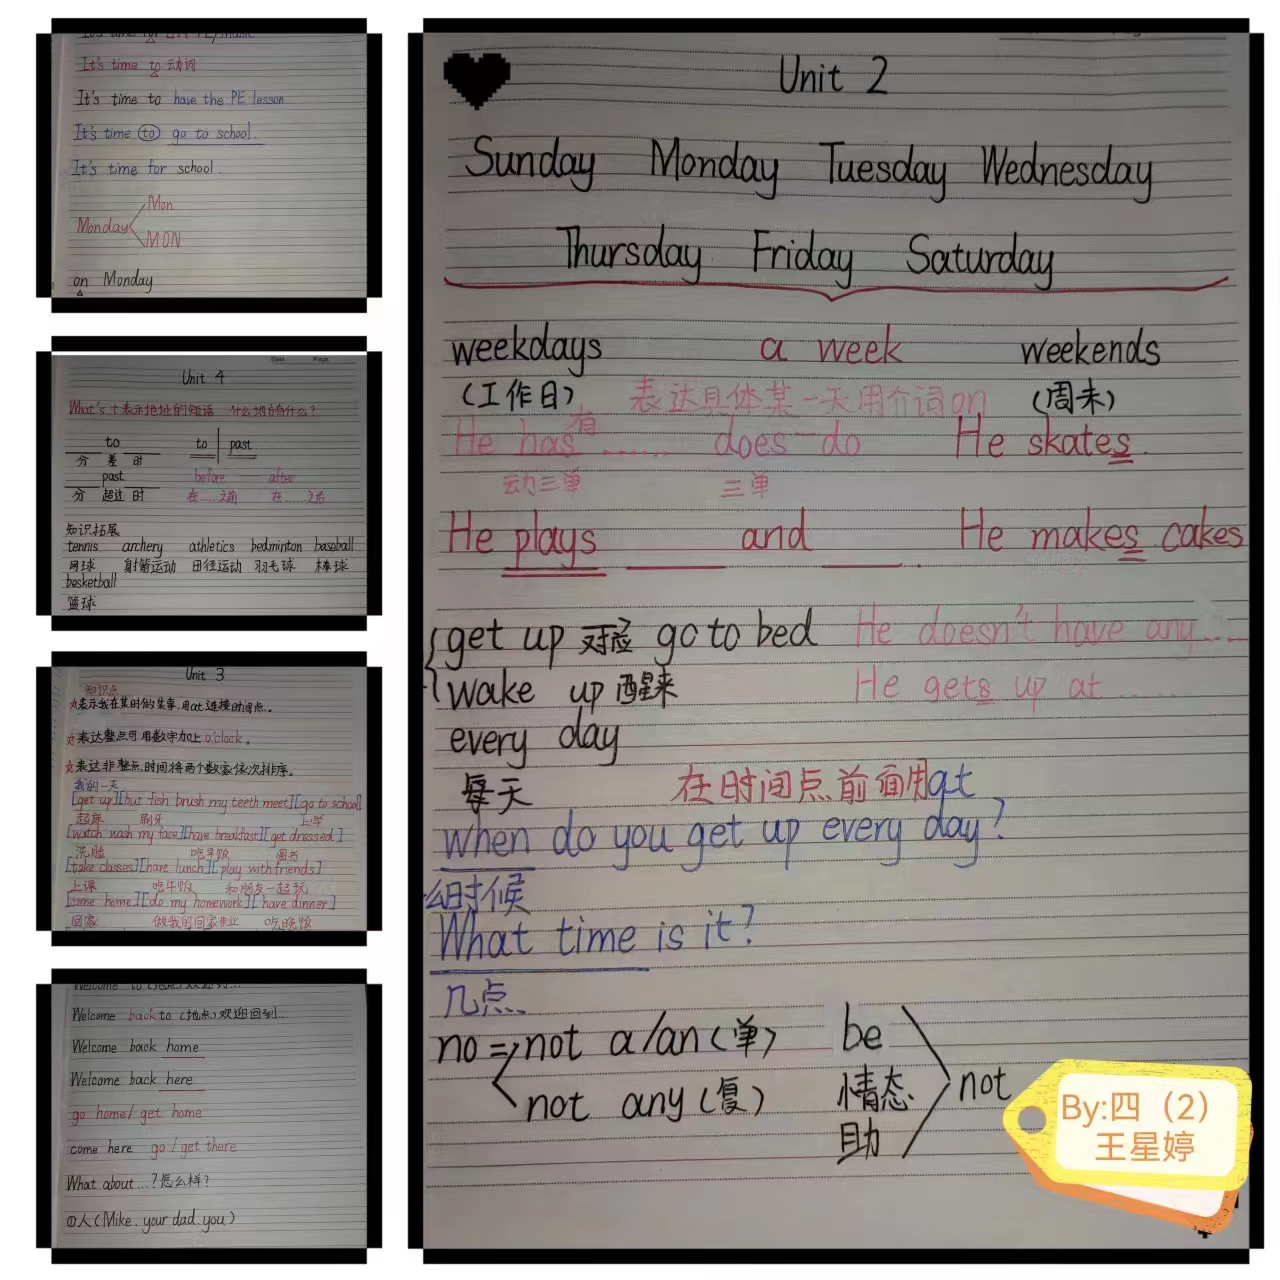 It's time to 动词
It's time to have the PE lesson
It's time to go to school.
It's time for school.
Mon
Monday
MON
on Monday
Unit 4
What's + 表示地址的短语 什么地方有什么?
to to past
分 差 时
past before after
分 超过 时 在……之前 在……之后
知识拓展
tennis archery athletics bedminton baseball
网球 射箭运动 田径运动 羽毛球 棒球
besketball
篮球
Unit 3
知识点
表示我在某时做某事,用at连接时间点。
表达整点可用数字加上o'clock。
表达非整点时间将两个数字依次排序。
我的一天
[get up][but fish brush my teeth meet][go to school]
起床 刷牙 上学
[watch wash my face][have breakfast][get dressed]
洗脸 吃早饭
[take classes][have lunch][play with friends]
上课 吃午饭 和朋友一起玩
[come home][do my homework][have dinner]
回家 做我的回家作业 吃晚饭
Welcome back to (地点) 欢迎回到…
Welcome back home
Welcome back here
go home/ get home
come here go / get there
What about …? 怎么样?
①人(Mike. your dad. you)
Unit 2
Sunday Monday Tuesday Wednesday
Thursday Friday Saturday
weekdays a week weekends
(工作日) 表达具体某一天用介词on (周末)
有
He has …… does—do He skates.
动三单 三单
He plays and . He makes cakes
get up 对应 go to bed He doesn't have any……
wake up 醒来 He gets up at ……
every day
每天 在时间点前面用at
when do you get up every day?
么时候
What time is it?
几点
no => not a/an (单) be
not any (复) 情态 not
助
By:四（2）
王星婷